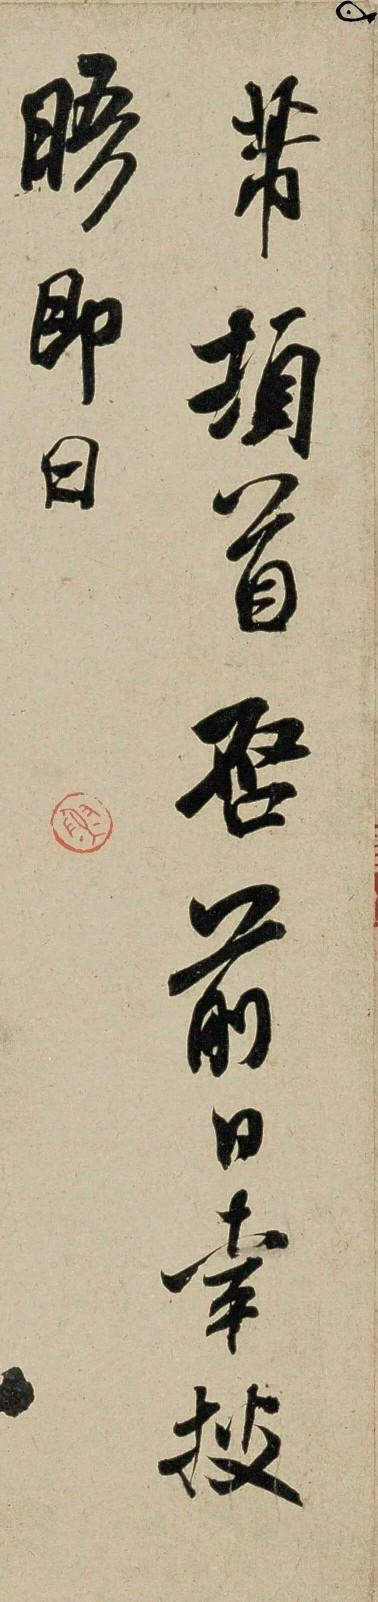 芾頓首啓前日幸披
晤即日